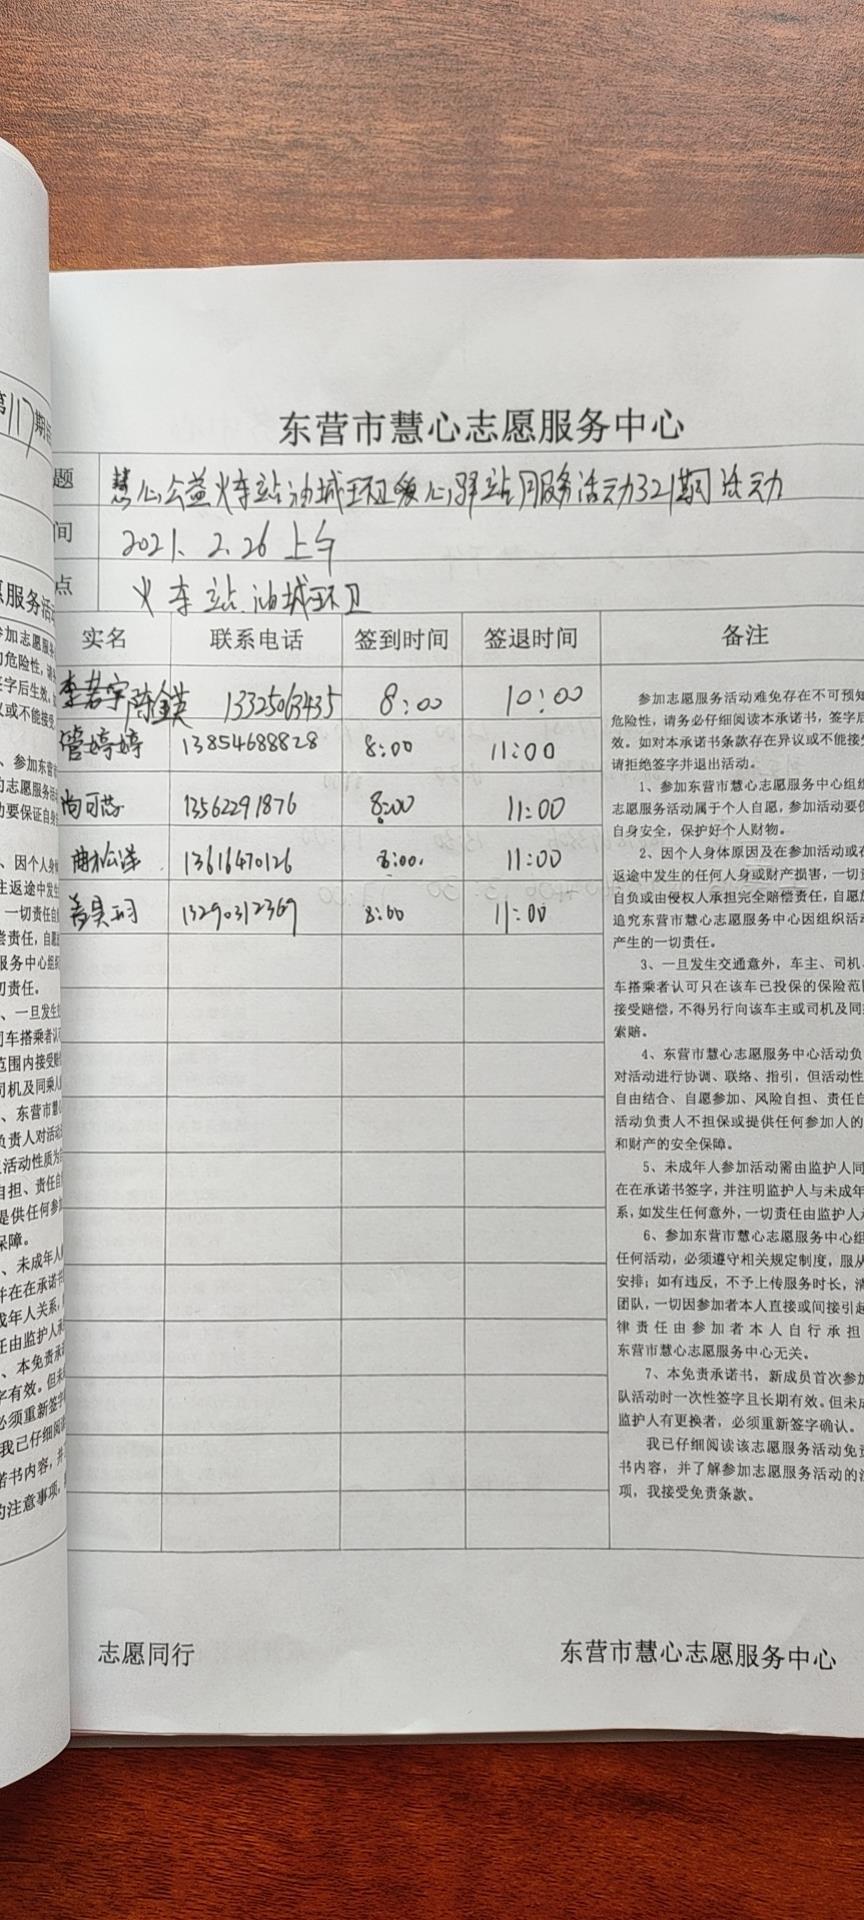 东营市慧心志愿服务中心
题 慧心公益火车站油城环卫爱心驿站服务活动321期活动
间 2021.2.26 上午
点 火车站.油城环卫
实名 联系电话 签到时间 签退时间 备注
李若宇 陈金英 13325063435 8:00 10:00
管婷婷 13854688828 8:00 11:00
尚可 13562291876 8:00 11:00
曲松洋 13616470126 8:00. 11:00
13290312369 8:00 11:00
参加志愿服务活动难免存在不可预知
危险性,请务必仔细阅读本承诺书,签字后
效。如对本承诺书条款存在异议或不能接受
请拒绝签字并退出活动。
1、参加东营市慧心志愿服务中心组织
志愿服务活动属于个人自愿,参加活动要保
自身安全,保护好个人财物。
2、因个人身体原因及在参加活动或在
返途中发生的任何人身或财产损害,一切责
自负或由侵权人承担完全赔偿责任,自愿放
追究东营市慧心志愿服务中心因组织活动
产生的一切责任。
3、一旦发生交通意外,车主、司机、
车搭乘者认可只在该车已投保的保险范围
接受赔偿,不得另行向该车主或司机及同乘
索赔。
4、东营市慧心志愿服务中心活动负
对活动进行协调、联络、指引,但活动性
自由结合、自愿参加、风险自担、责任自
活动负责人不担保或提供任何参加人的
和财产的安全保障。
5、未成年人参加活动需由监护人同
在在承诺书签字,并注明监护人与未成年
系,如发生任何意外,一切责任由监护人承
6、参加东营市慧心志愿服务中心组
任何活动,必须遵守相关规定制度,服从
安排;如有违反,不予上传服务时长,清
团队,一切因参加者本人直接或间接引起
律责任由参加者本人自行承担
东营市慧心志愿服务中心无关。
7、本免责承诺书,新成员首次参加
队活动时一次性签字且长期有效。但未成
监护人有更换者,必须重新签字确认。
我已仔细阅读该志愿服务活动免责
书内容,并了解参加志愿服务活动的注
项,我接受免责条款。
志愿同行 东营市慧心志愿服务中心